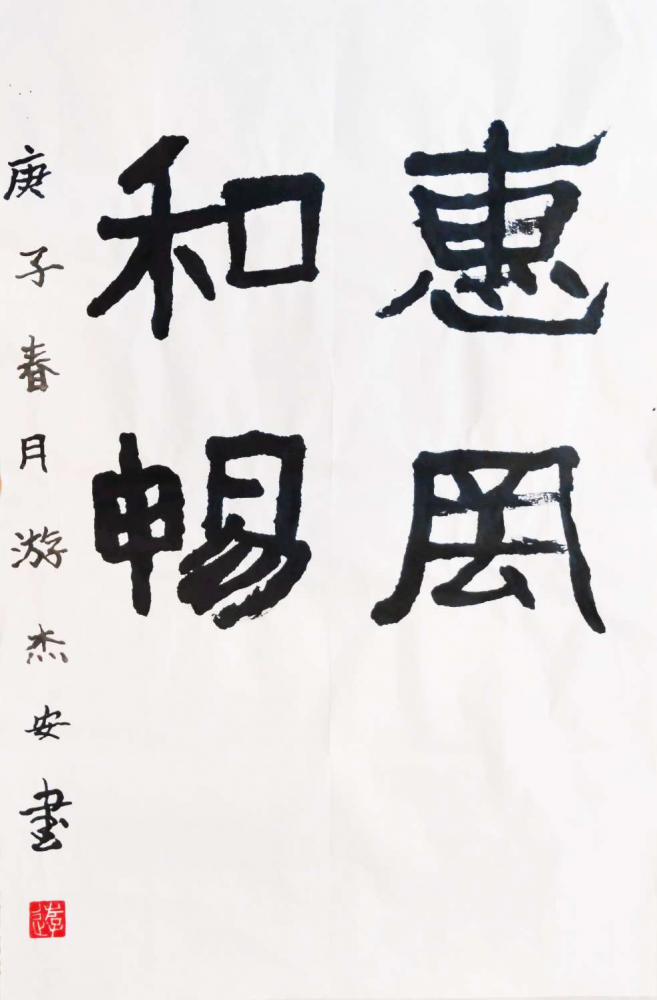 惠風
和暢
庚子春月游杰安書